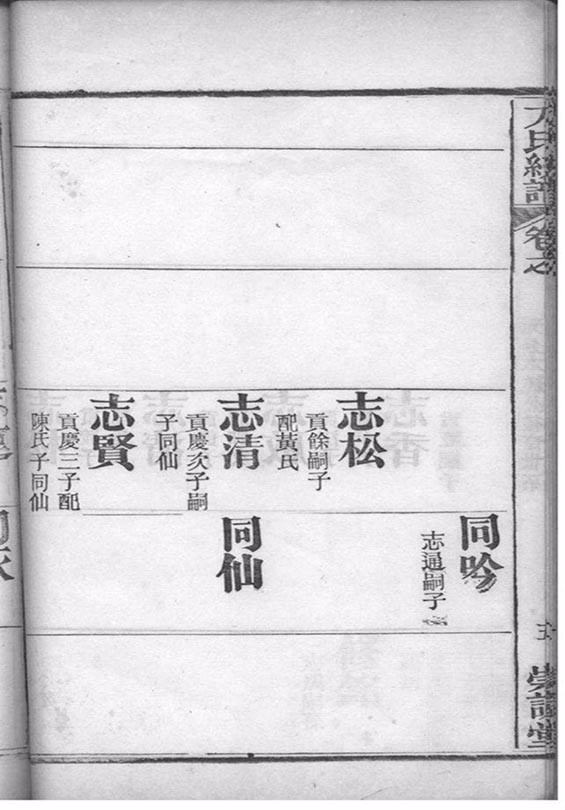 氏經譜
卷之
崇讓堂
志松
貢餘嗣子
配黃氏
志清
貢慶次子嗣
子同仙
志賢
貢慶三子配
陳氏子同仙
同吟
志通嗣子
同仙